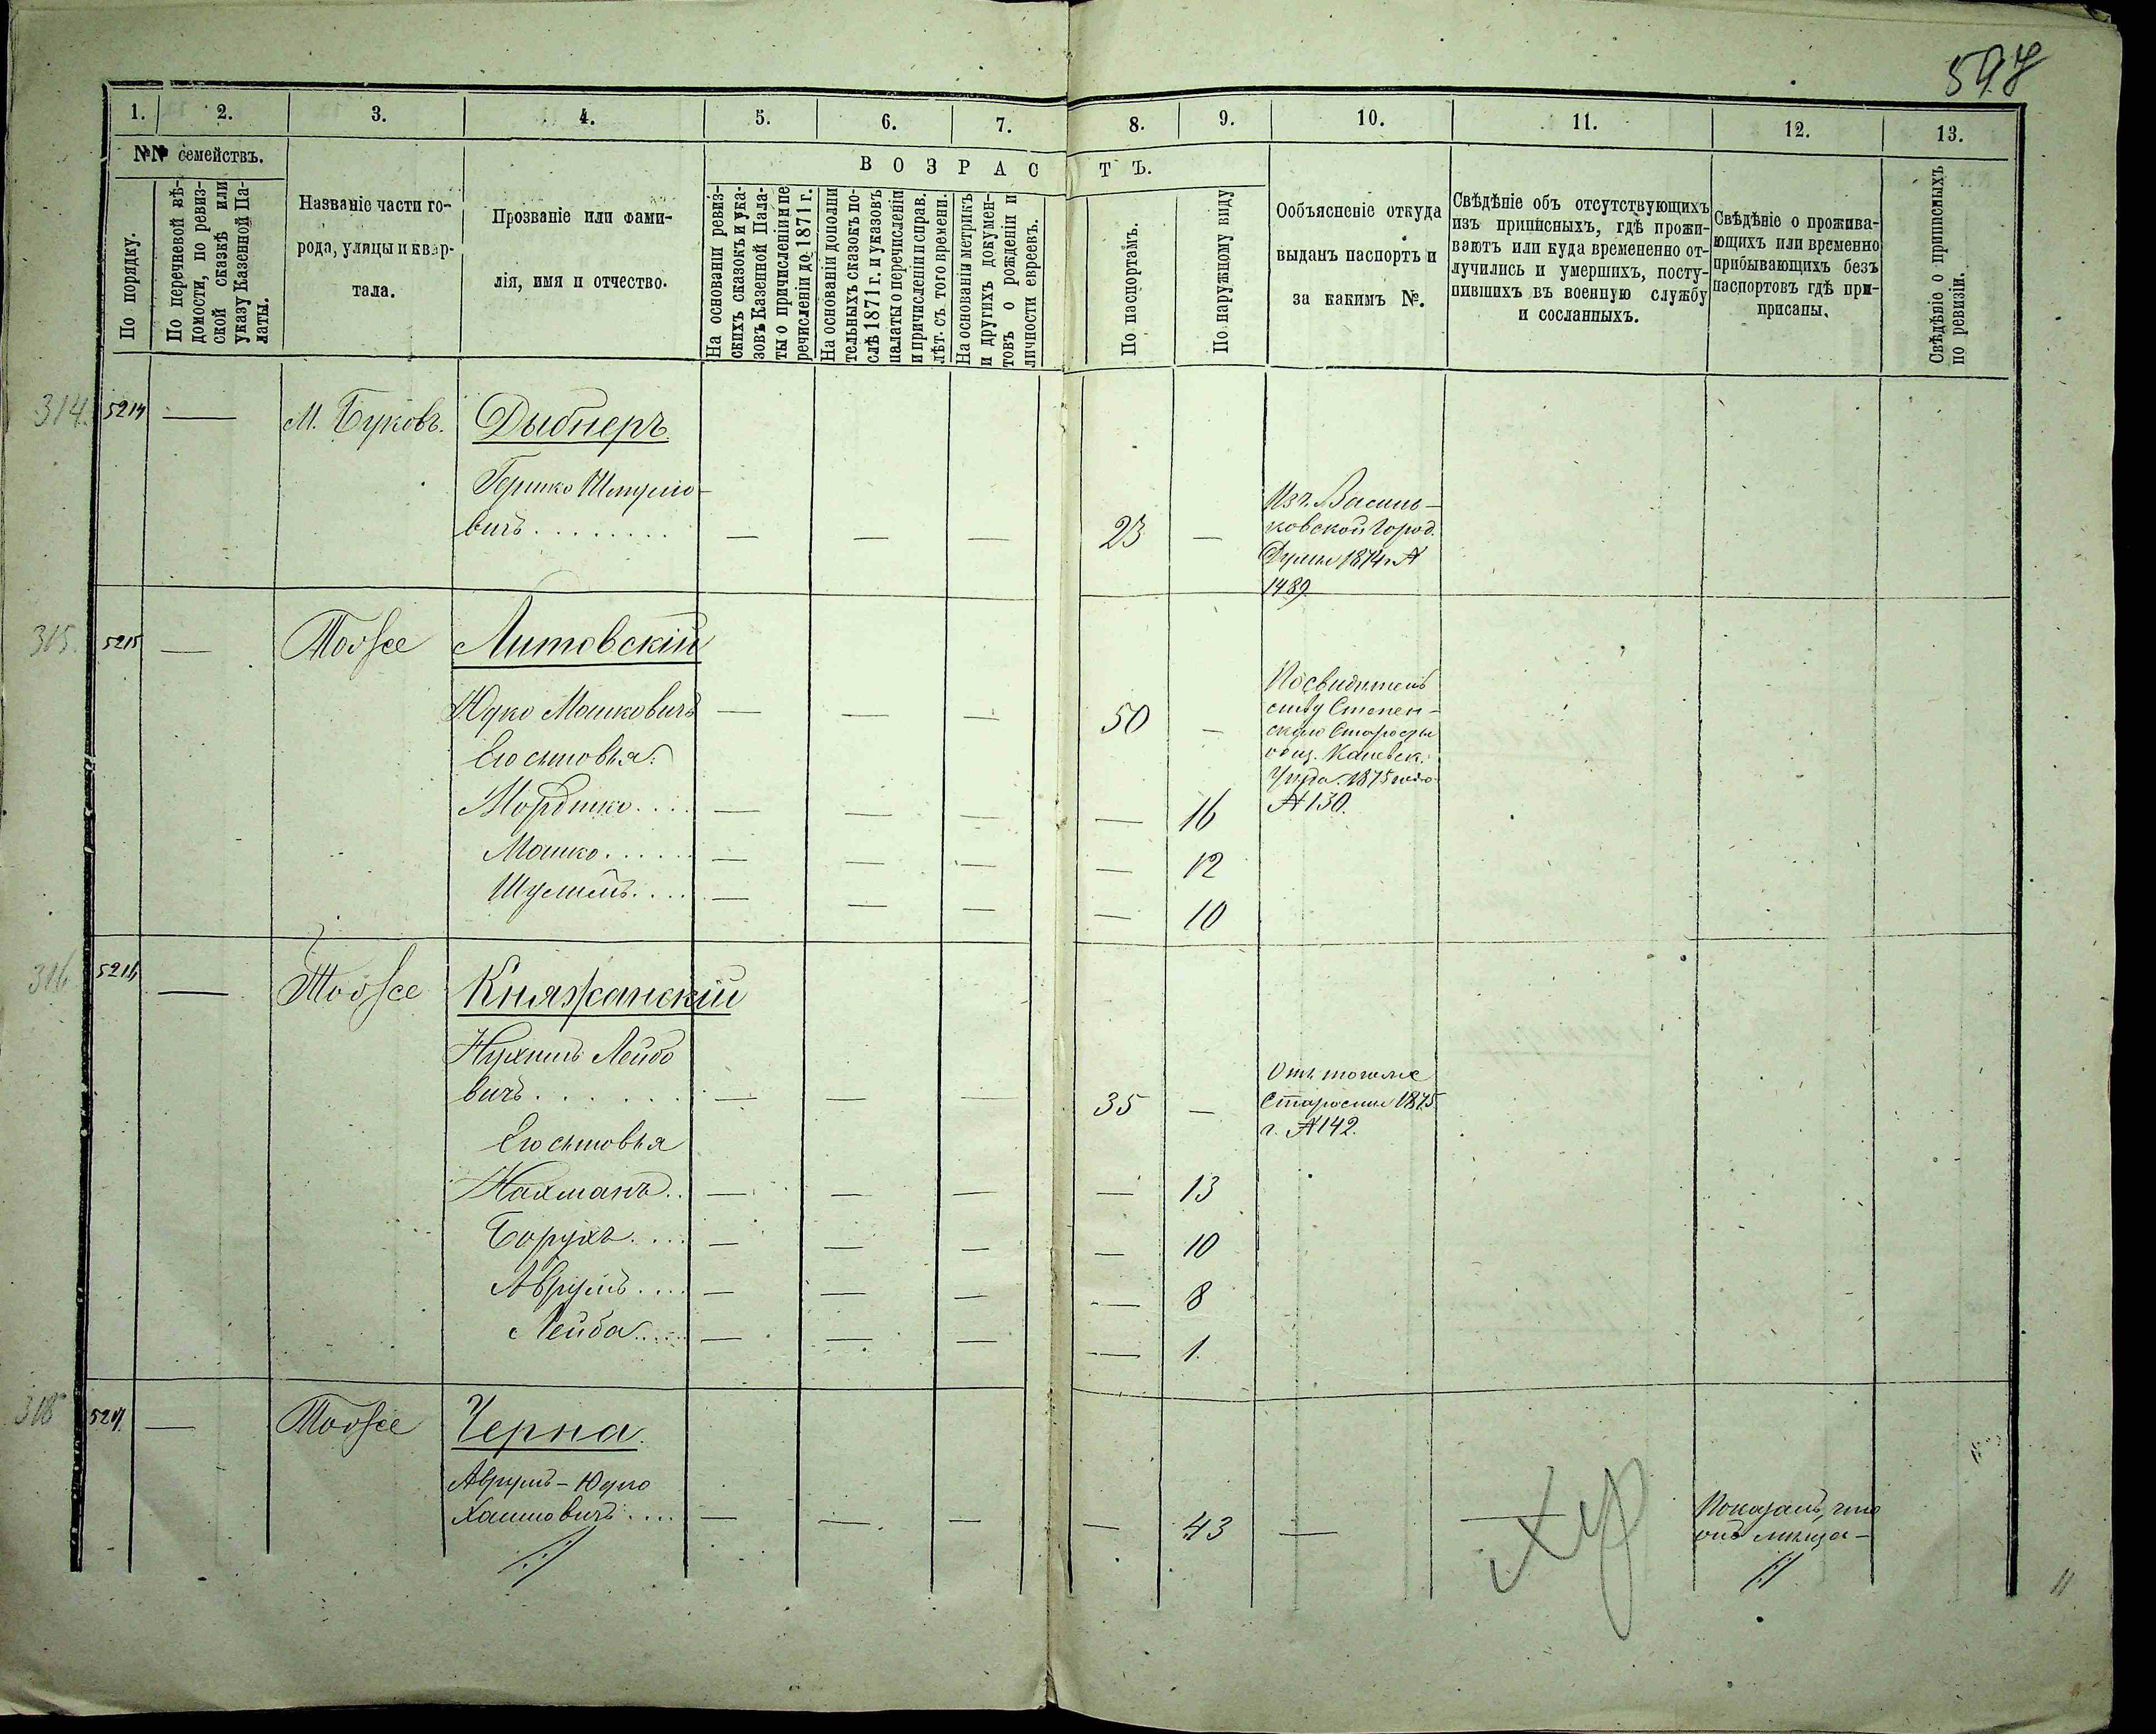 597
1. 2. 3. 4. 5. 6. 7. 8. 9. 10. 11. 12. 13.
№№ семействъ.
По порядку.
По перечневой вѣ-
домости, по ревиз-
ской сказкѣ или
указу Казенной Па-
латы.
Названіе части го-
рода, улицы и квар-
тала.
Прозваніе или фами-
лія, имя и отчество.
ВОЗРАСТЪ.
На основаніи ревиз-
скихъ сказокъ и ука-
зовъ Казенной Пала-
ты о причисленіи и пе
речисленіи до 1871 г.
На основаніи дополни
тельныхъ сказокъ по-
слѣ 1871 г. и указовъ
палаты о перечисленіи
и причисленіи и справ.
лѣт. съ того времени.
На основаніи метрикъ
и другихъ докумен-
товъ о рожденіи и
личности евреевъ.
По паспортамъ.
По наружному виду
Ообъясненіе откуда
выданъ паспортъ и
за какимъ №.
Свѣдѣніе объ отсутствующихъ
изъ приписныхъ, гдѣ прожи-
ваютъ или куда времененно от-
лучились и умершихъ, посту-
пившихъ въ военную службу
и сосланныхъ.
Свѣдѣніе о прожива-
ющихъ или временно
прибывающихъ безъ
паспортовъ гдѣ при-
присаны.
Свѣдѣніе о приписныхъ
по ревизіи.
314. 5214 — М. Буковъ. Дыбнеръ
Гершко Шмулио-
вичъ — — — 23 — Изъ Василь-
ковской Город.
Думы 1874 г №
1489
315. 5215 — Тоже Литовскій
Юдко Мошковичъ — — — 50 — По свидѣтель
ству Степен-
скаго Старосты
общ. Каневск.
Уѣзда. 1875 года
№ 130.
Его сыновья:
Мордко — — — — 16
Мошко — — — — 12
Шулимъ — — — — 10
316 5216 — Тоже Княжанскій
Нухимъ Лейбо
вичъ — — — 35 — Отъ тогоже
Старосты 1875
г. № 142.
Его сыновья
Нахманъ — — — — 13
Борухъ — — — — 10
Аврумъ — — — — 8
Лейба — — — — 1.
318 5217 — Тоже Черна
Аврумъ-Юдко
Хаимовичъ — — — — 43 — — Показалъ, что
онъ мѣща-